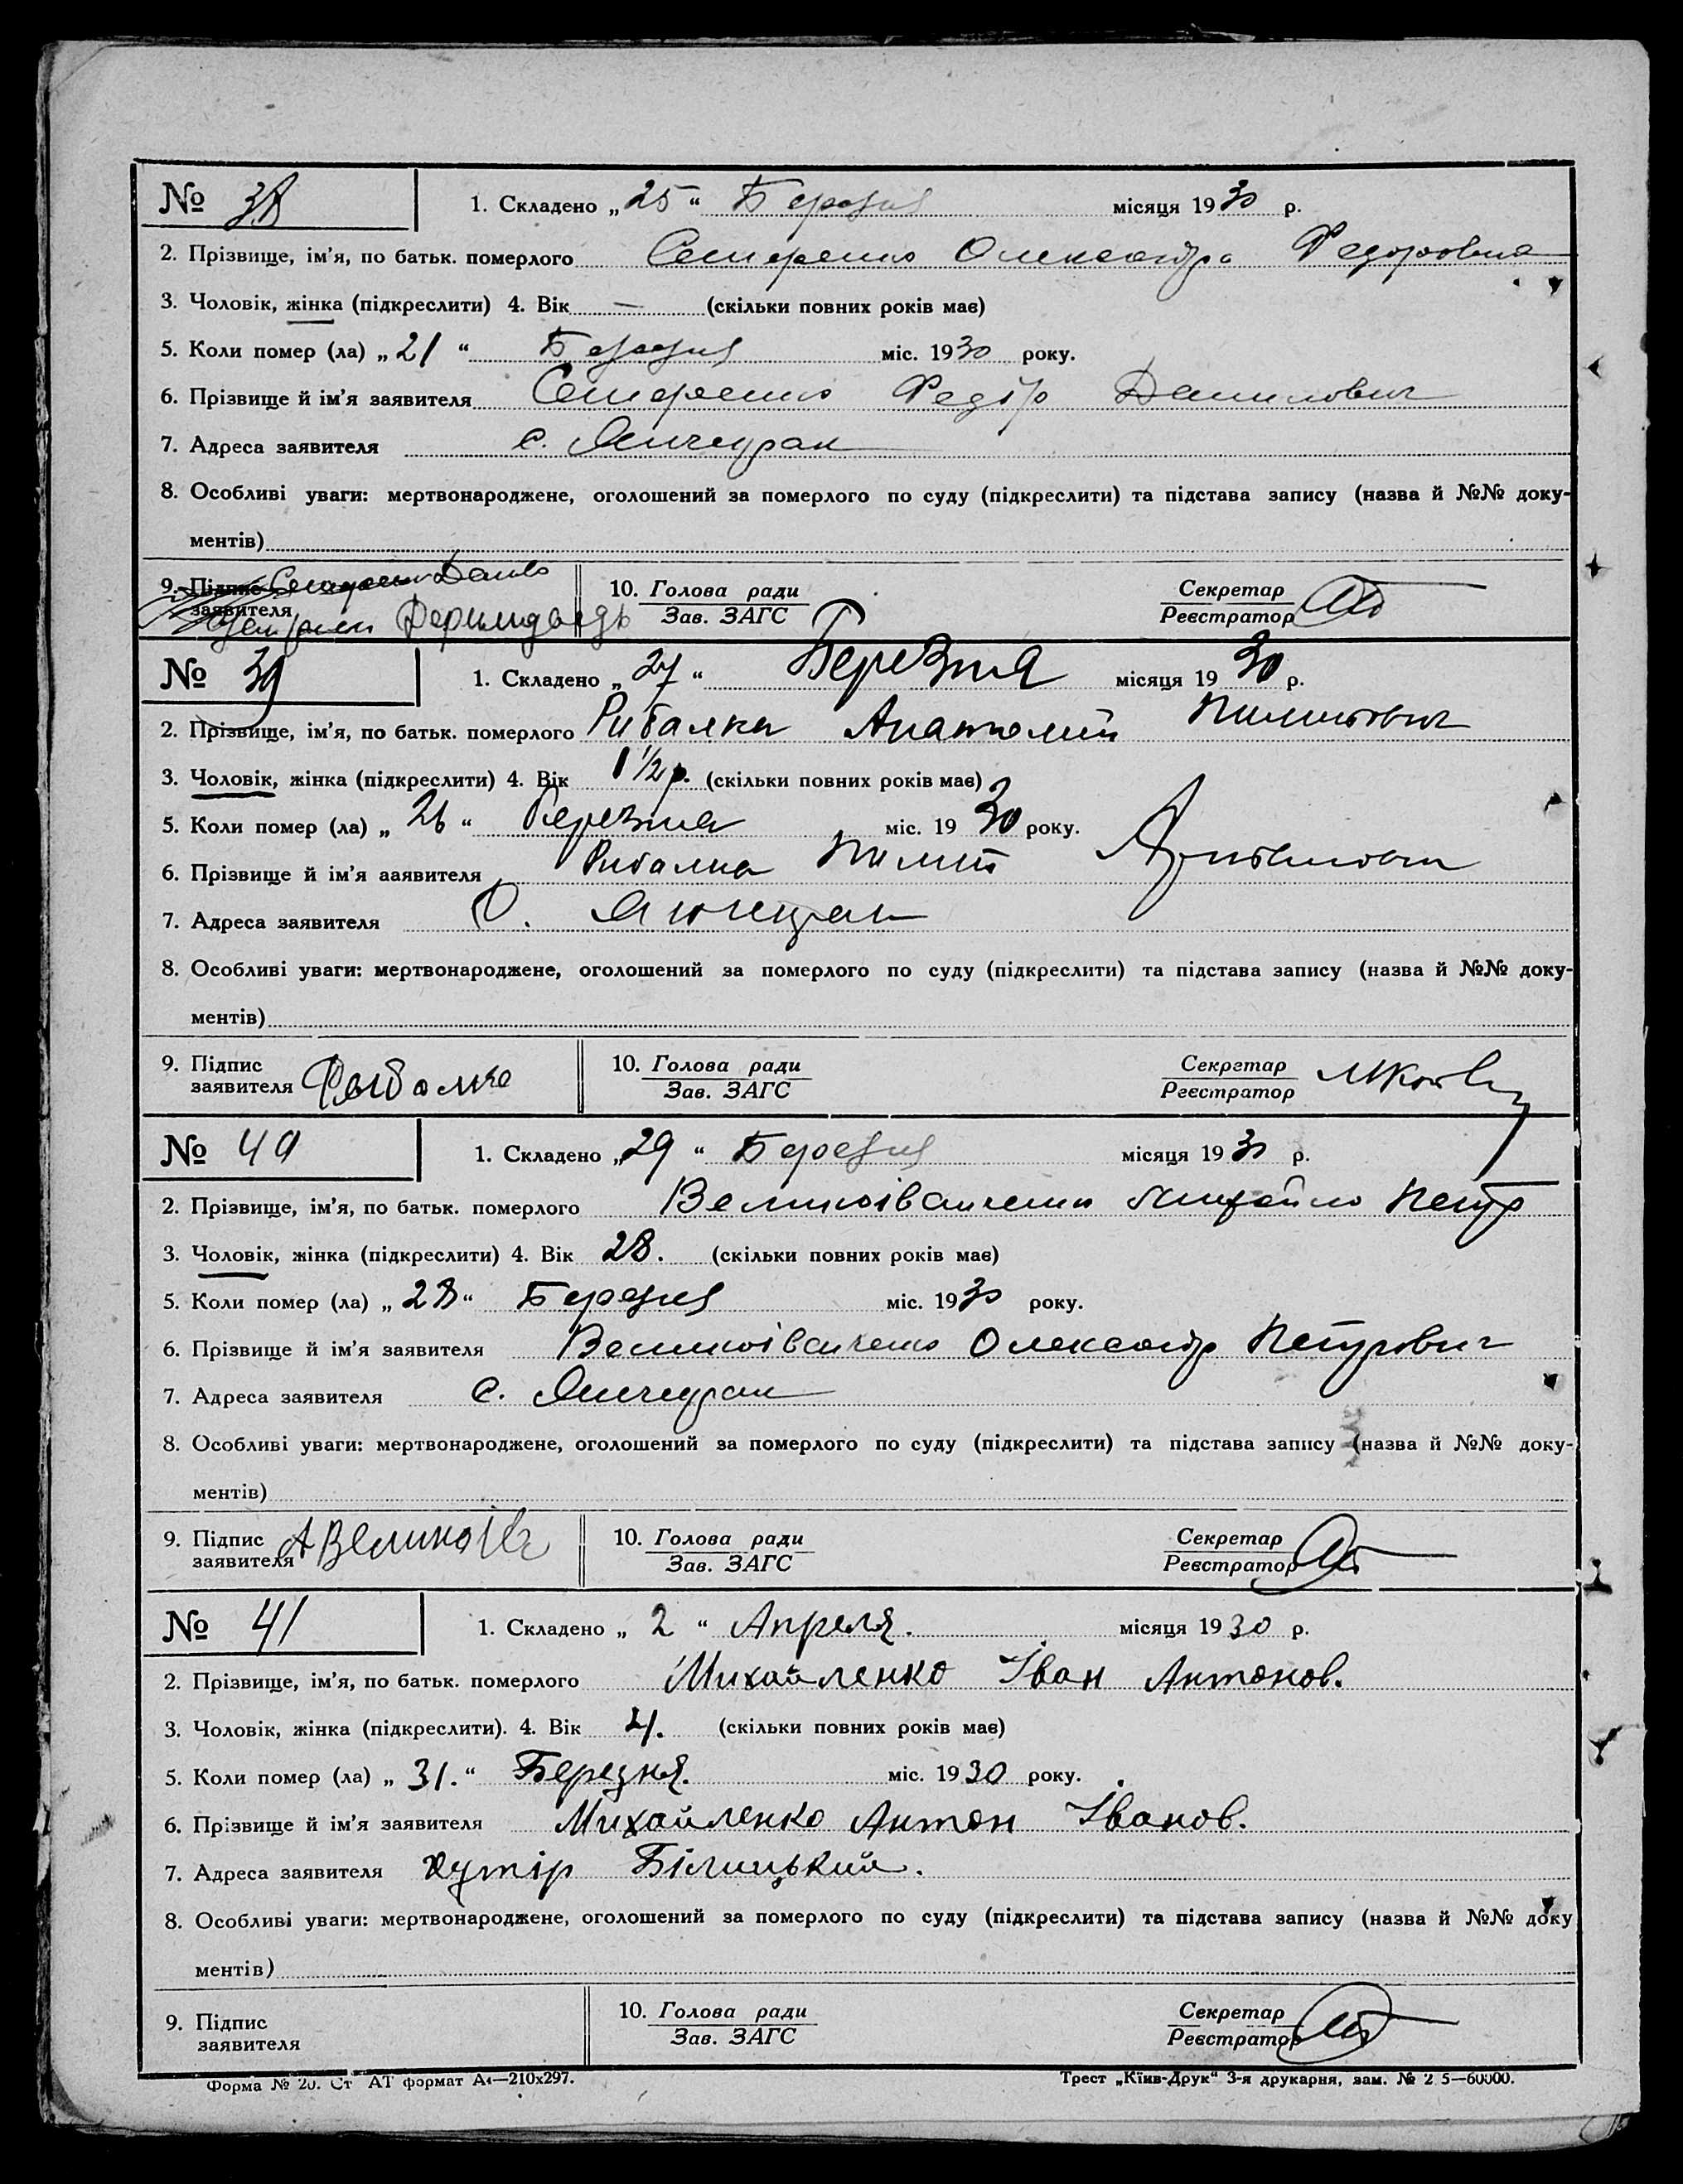 № 38 1. Складено „25“ Березня місяця 1930 р.
2. Прізвище, ім'я, по батьк. померлого Олександра Федоровна
3. Чоловік, жінка (підкреслити) 4. Вік — (скільки повних років має)
5. Коли помер (ла) „21“ Березня міс. 1930 року.
6. Прізвище й ім'я заявителя Федір Данилович
7. Адреса заявителя с. Янчекрак
8. Особливі уваги: мертвонароджене, оголошений за померлого по суду (підкреслити) та підстава запису (назва й №№ доку-
ментів)
9. Підпис
заявителя
10. Голова ради Секретар
Зав. ЗАГС Реєстратор
№ 39 1. Складено „27“ Березня місяця 1930 р.
2. Прізвище, ім'я, по батьк. померлого Рибалка Анатолій Пилипович
3. Чоловік, жінка (підкреслити) 4. Вік 1 1/2 р. (скільки повних років має)
5. Коли помер (ла) „26“ Березня міс. 1930 року.
6. Прізвище й ім'я ааявителя Рибалка Пилип
7. Адреса заявителя С. Янчекрак
8. Особливі уваги: мертвонароджене, оголошений за померлого по суду (підкреслити) та підстава запису (назва й №№ доку-
ментів)
9. Підпис
заявителя Рыбалка
10. Голова ради Секретар
Зав. ЗАГС Реєстратор
№ 40 1. Складено „29“ Березня місяця 1930 р.
2. Прізвище, ім'я, по батьк. померлого Великоіваненко Михайло Петр
3. Чоловік, жінка (підкреслити) 4. Вік 28. (скільки повних років має)
5. Коли помер (ла) „28“ Березня міс. 1930 року.
6. Прізвище й ім'я заявителя Великоіваненко Олександр Петрович
7. Адреса заявителя с. Янчекрак
8. Особливі уваги: мертвонароджене, оголошений за померлого по суду (підкреслити) та підстава запису (назва й №№ доку-
ментів)
9. Підпис
заявителя
10. Голова ради Секретар
Зав. ЗАГС Реєстратор
№ 41 1. Складено „2“ Апреля. місяця 1930 р.
2. Прізвище, ім'я, по батьк. померлого Михайленко Іван Антонов.
3. Чоловік, жінка (підкреслити). 4. Вік 4. (скільки повних років має)
5. Коли помер (ла) „31.“ Березня. міс. 1930 року.
6. Прізвище й ім'я заявителя Михайленко Антон Іванов.
7. Адреса заявителя хутір Білицький.
8. Особливі уваги: мертвонароджене, оголошений за померлого по суду (підкреслити) та підстава запису (назва й №№ доку
ментів)
9. Підпис
заявителя
10. Голова ради Секретар
Зав. ЗАГС Реєстратор
Форма № 20. Ст АТ формат А4—210x297. Трест „Київ-Друк“ 3-я друкарня, зам. № 2 5—60000.